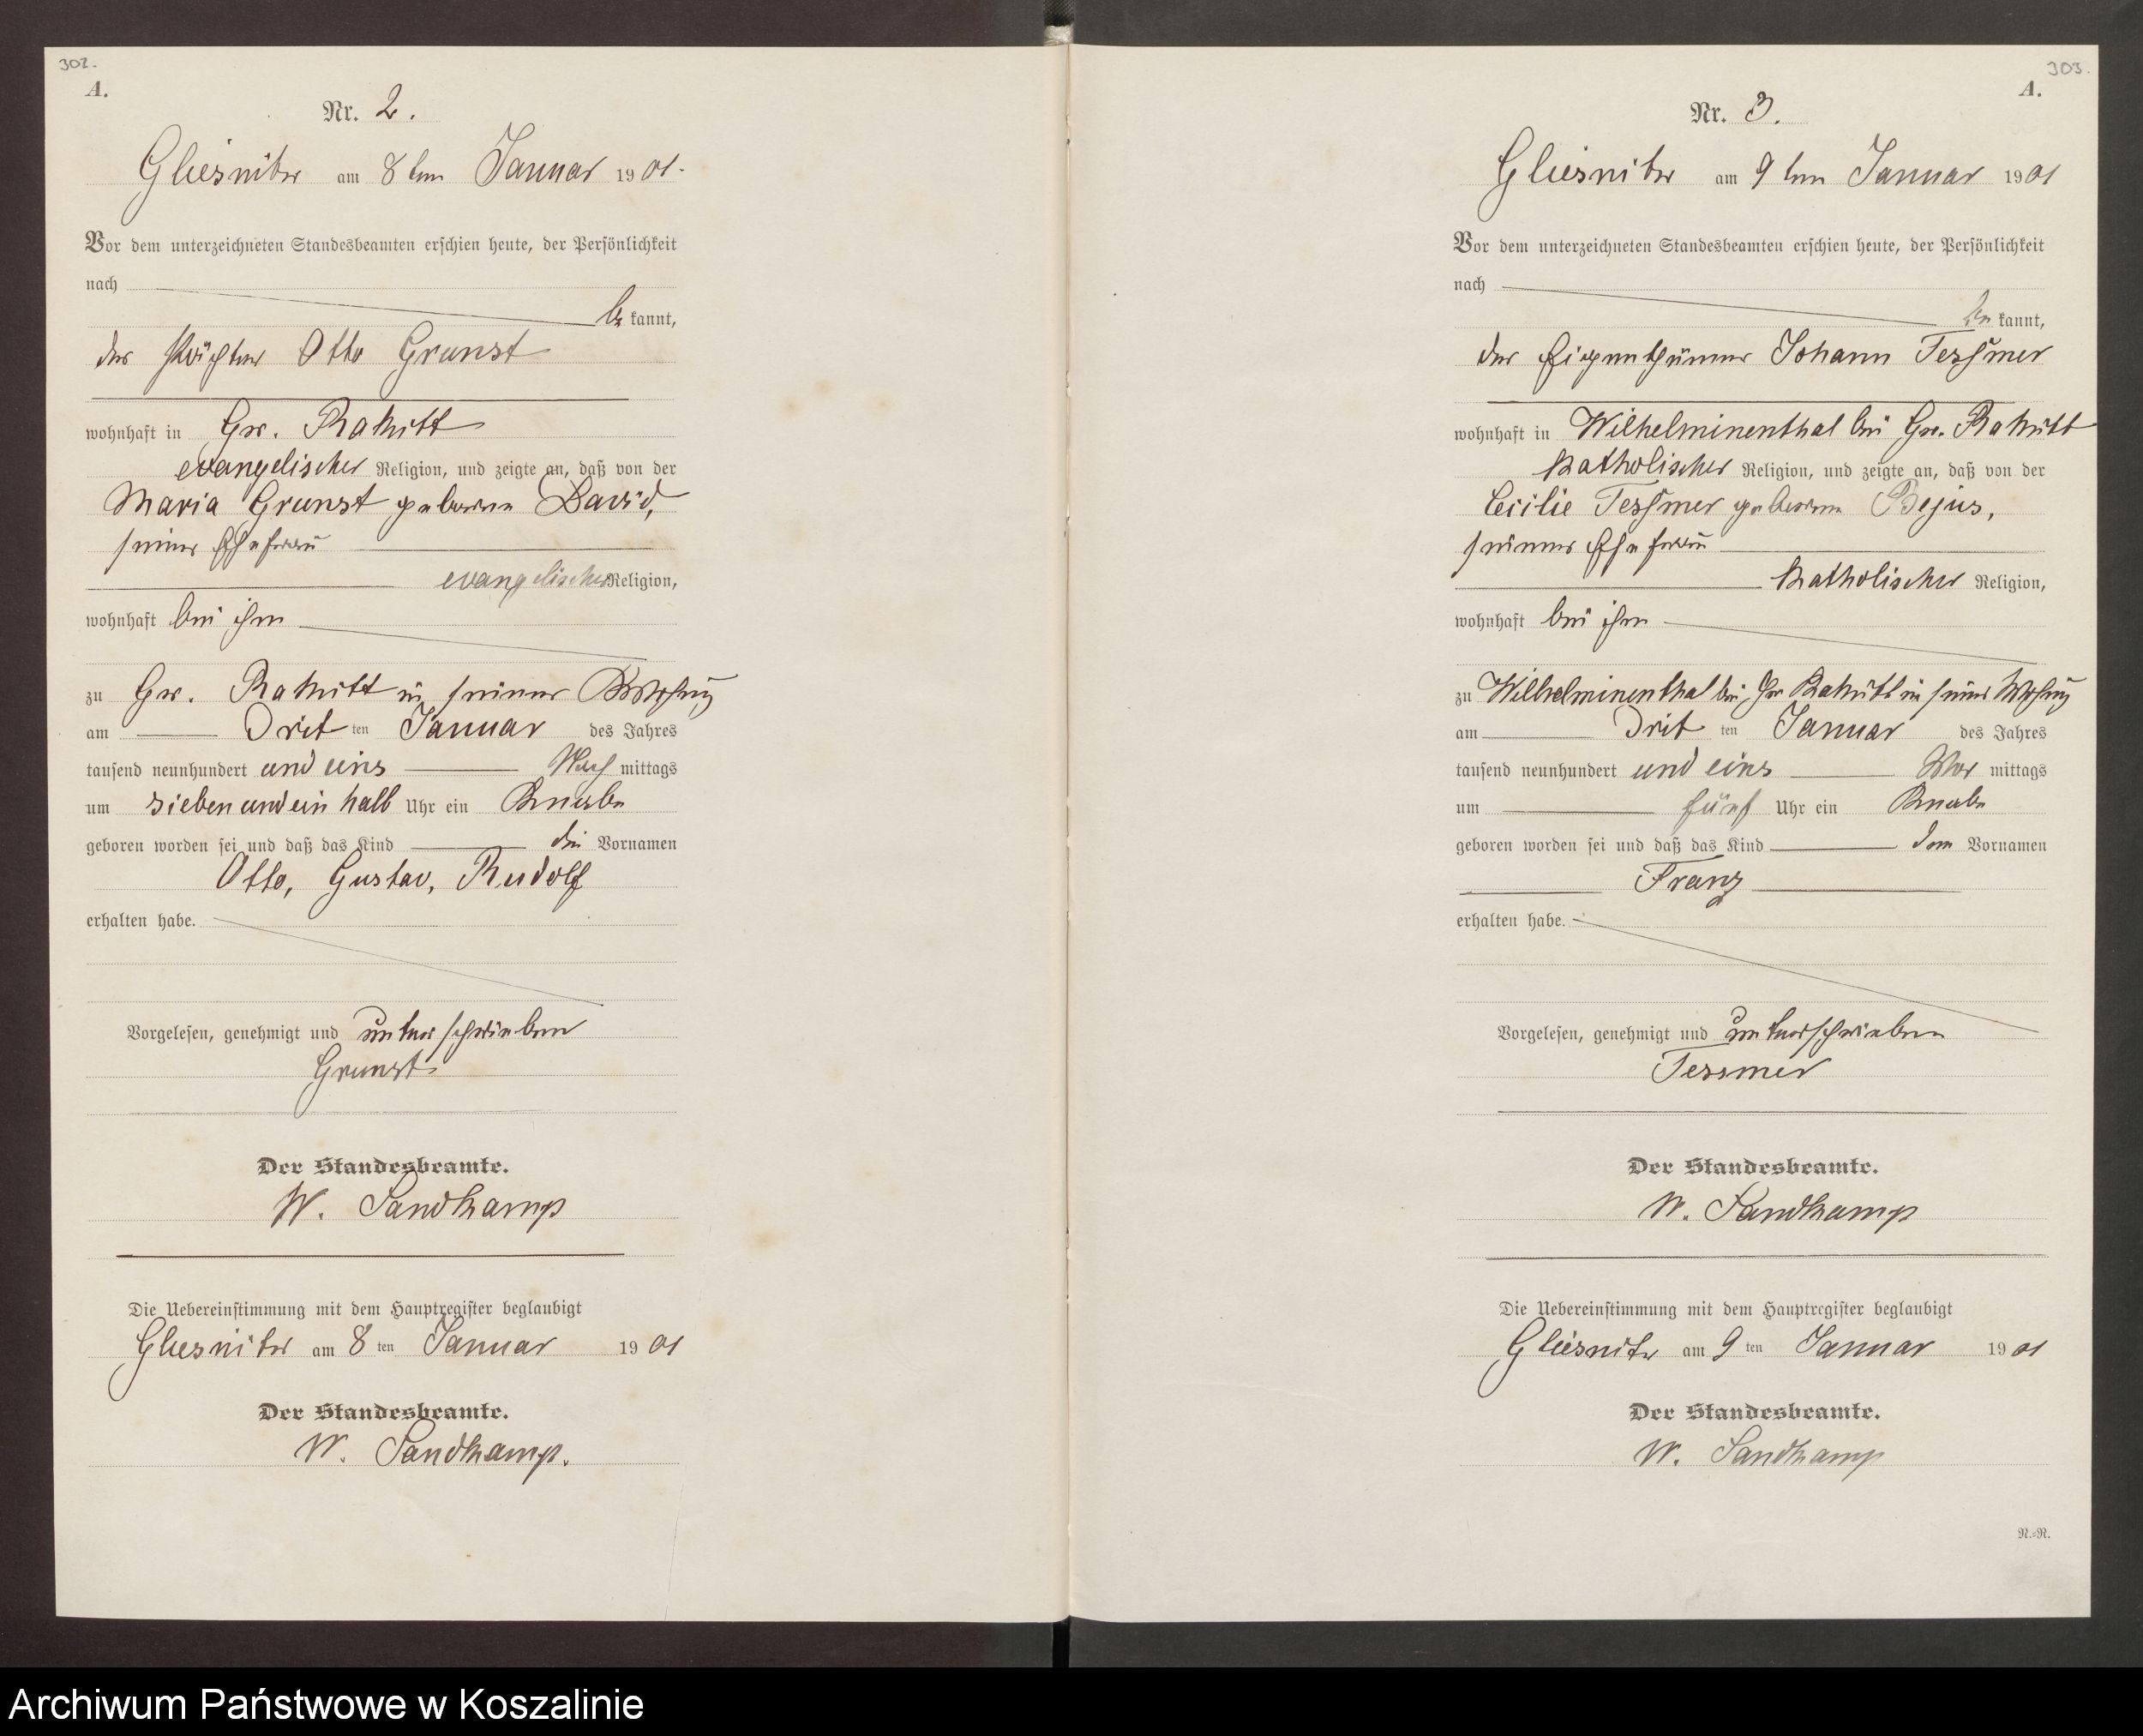 302.
A.
Nr. 2.
Gliesnitz am 8ten Januar 1901.
Vor dem unterzeichneten Standesbeamten erschien heute, der Persönlichkeit
nach
be kannt,
der Pächter Otto Grunst
wohnhaft in Gr. Rakitt
evangelischer Religion, und zeigte an, daß von der
Maria Grunst geborene David,
seiner Ehefrau
evangelischer Religion,
wohnhaft bei ihm
zu Gr. Rakitt in seiner Wohnung
am Drit ten Januar des Jahres
tausend neunhundert und eins Nach mittags
um sieben und ein halb Uhr ein Knabe
geboren worden sei und daß das Kind die Vornamen
Otto, Gustav, Rudolf
erhalten habe.
Vorgelesen, genehmigt und unterschrieben
Grunst.
Der Standesbeamte.
W. Sandkamp
Die Uebereinstimmung mit dem Hauptregister beglaubigt
Gliesnitz am 8 ten Januar 1901
Der Standesbeamte.
W. Sandkamp.
303.
A.
Nr. 3.
Gliesnitz am 9ten Januar 1901
Vor dem unterzeichneten Standesbeamten erschien heute, der Persönlichkeit
nach
be kannt,
der Eigenthümer Johann Teßmer
wohnhaft in Wilhelminenthal bei Gr. Rakitt
katholischer Religion, und zeigte an, daß von der
Cecilie Teßmer geborene Bejus,
seiner Ehefrau
katholischer Religion,
wohnhaft bei ihm
zu Wilhelminenthal bei Gr Rakitt in seiner Wohnung
am Drit ten Januar des Jahres
tausend neunhundert und eins Vor mittags
um fünf Uhr ein Knabe
geboren worden sei und daß das Kind den Vornamen
Franz
erhalten habe.
Vorgelesen, genehmigt und unterschrieben
Tessmer
Der Standesbeamte.
W. Sandkamp
Die Uebereinstimmung mit dem Hauptregister beglaubigt
Gliesnitz am 9 ten Januar 1901
Der Standesbeamte.
W. Sandkamp
N.-R.
Archiwum Państwowe w Koszalinie